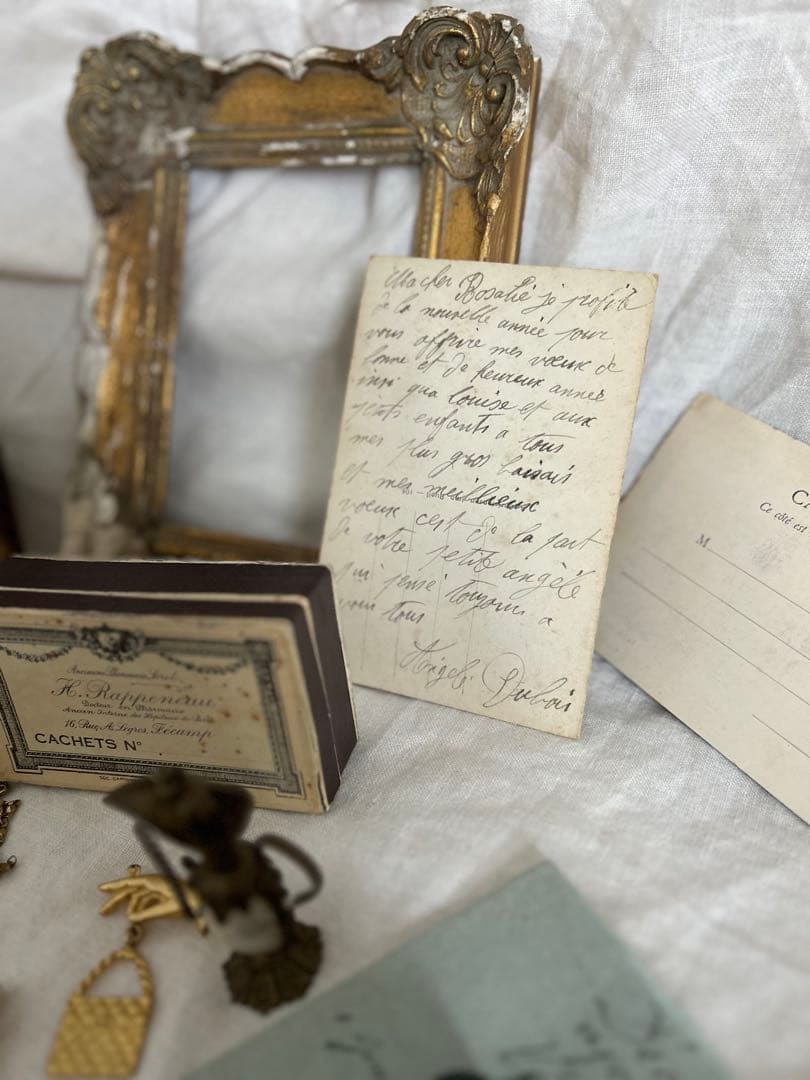 Ma cher Rosalie je profite
de la nouvelle année pour
vous offrire mes vœux de
bonne et de heureux année
insi qua louise et aux
petits enfants a tous
mes plus gros baisais
et mes meillieux
voeux cest de la part
de votre petite angèle
qui pense toujours a
vous tous
Angèle Dubois
H. Rappeneau
Docteur en Pharmacie
Ancien Interne des Hôpitaux de
16, Rue A. Legros, Fécamp
CACHETS N°
Ce côté est
M